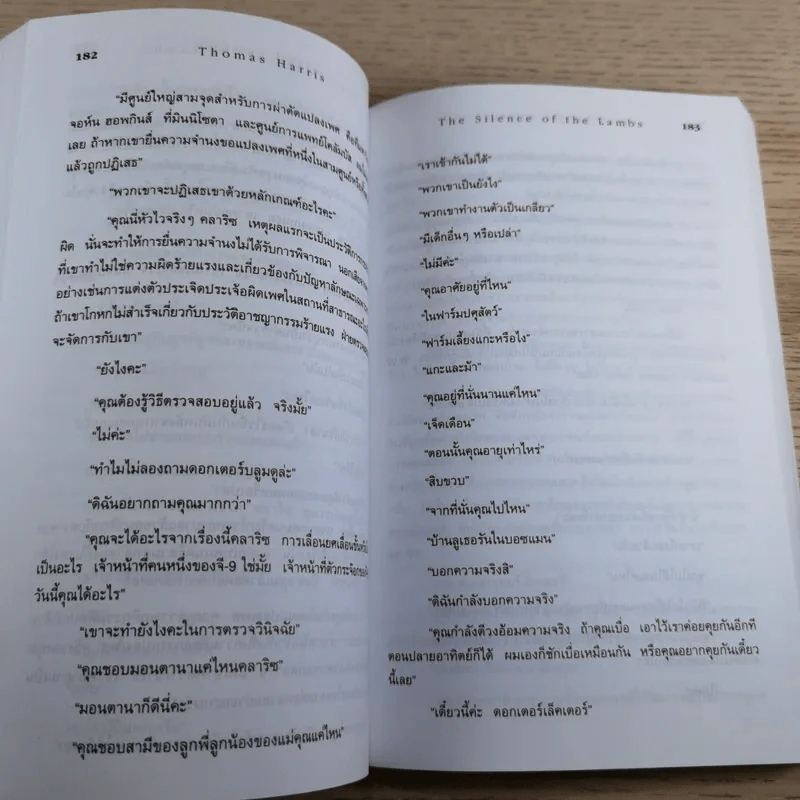 182
Thomas Harris
"มีศูนย์ใหญ่สามจุดสำหรับการผ่าตัดแปลงเพศ คือที่
จอห์น ฮอพกินส์ ที่มินนิโซตา และศูนย์การแพทย์โคลัมบัส
เลย ถ้าหากเขายื่นความจำนงขอแปลงเพศที่หนึ่งในสามศูนย์
แล้วถูกปฏิเสธ"
"พวกเขาจะปฏิเสธเขาด้วยหลักเกณฑ์อะไรคะ"
"คุณนี่หัวไวจริงๆ คลาริซ เหตุผลแรกจะเป็นประวัติการ
ผิด นั่นจะทำให้การยื่นความจำนงไม่ได้รับการพิจารณา
ที่เขาทำไม่ใช่ความผิดร้ายแรงและเกี่ยวข้องกับปัญหาลักษณะ
อย่างเช่นการแต่งตัวประเจิดประเจ้อผิดเพศในสถานที่สาธารณะ
ถ้าเขาโกหกไม่สำเร็จเกี่ยวกับประวัติอาชญากรรมร้ายแรง
จะจัดการกับเขา"
"ยังไงคะ"
"คุณต้องรู้วิธีตรวจสอบอยู่แล้ว จริงมั้ย"
"ไม่ค่ะ"
"ทำไมไม่ลองถามดอกเตอร์บลูมดูล่ะ"
"ดิฉันอยากถามคุณมากกว่า"
"คุณจะได้อะไรจากเรื่องนี้คลาริซ การเลื่อนยศเลื่อนขั้น
เป็นอะไร เจ้าหน้าที่คนหนึ่งของจี-9 ใช่มั้ย เจ้าหน้าที่ตัวกระจ้อก
วันนี้คุณได้อะไร"
"เขาจะทำยังไงคะในการตรวจวินิจฉัย"
"คุณชอบมอนตานาแค่ไหนคลาริซ"
"มอนตานาก็ดีนี่คะ"
"คุณชอบสามีของลูกพี่ลูกน้องของแม่คุณแค่ไหน"
The Silence of the Lambs
183
"เราเข้ากันไม่ได้"
"พวกเขาเป็นยังไง"
"พวกเขาทำงานตัวเป็นเกลียว"
"มีเด็กอื่นๆ หรือเปล่า"
"ไม่มีค่ะ"
"คุณอาศัยอยู่ที่ไหน"
"ในฟาร์มปศุสัตว์"
"ฟาร์มเลี้ยงแกะหรือไง"
"แกะและม้า"
"คุณอยู่ที่นั่นนานแค่ไหน"
"เจ็ดเดือน"
"ตอนนั้นคุณอายุเท่าไหร่"
"สิบขวบ"
"จากที่นั่นคุณไปไหน"
"บ้านลูเธอรันในบอซแมน"
"บอกความจริงสิ"
"ดิฉันกำลังบอกความจริง"
"คุณกำลังตีวงอ้อมความจริง ถ้าคุณเบื่อ เอาไว้เราค่อยคุยกันอีกที
ตอนปลายอาทิตย์ก็ได้ ผมเองก็ชักเบื่อเหมือนกัน หรือคุณอยากคุยกันเดี๋ยว
นี้เลย"
"เดี๋ยวนี้ค่ะ ดอกเตอร์เล็คเตอร์"